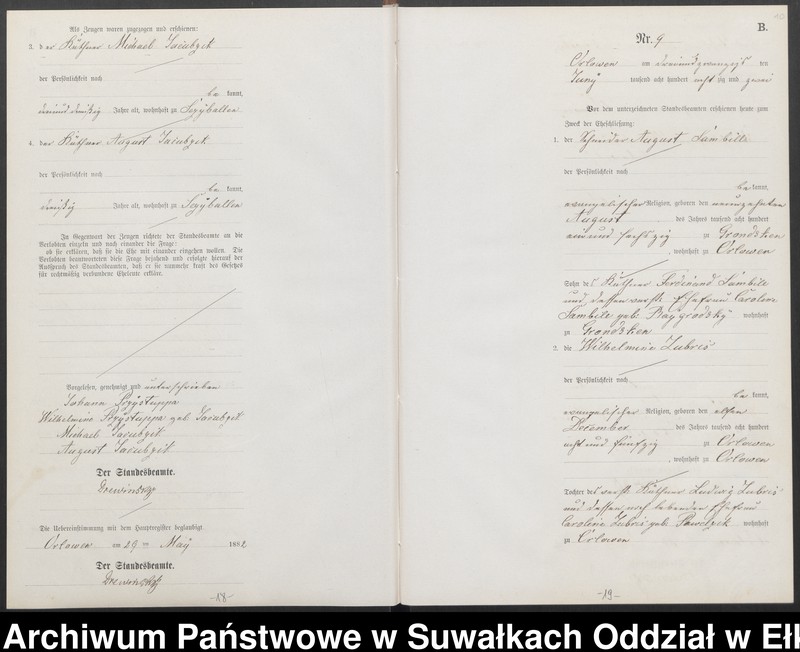 Als Zeugen waren zugezogen und erschienen:
3. der Käthner Michael Jacubzek
der Persönlichkeit nach
be kannt,
dreiund dreißig Jahre alt, wohnhaft zu Szÿballen
4. der Käthner August Jacubzek
der Persönlichkeit nach
be kannt,
dreißig Jahre alt, wohnhaft zu Szÿballen
In Gegenwart der Zeugen richtete der Standesbeamte an die
Verlobten einzeln und nach einander die Frage:
ob sie erklären, daß sie die Ehe mit einander eingehen wollen. Die
Verlobten beantworteten diese Frage bejahend und erfolgte hierauf der
Ausspruch des Standesbeamten, daß er sie nunmehr kraft des Gesetzes
für rechtmäßig verbundene Eheleute erkläre.
Vorgelesen, genehmigt und unterschrieben
Johann Przÿstuppa
Wilhelmine Przÿstuppa geb. Jacubzek
Michael Jacubzik
August Jacubzik
Der Standesbeamte.
Drewinskÿ
Die Uebereinstimmung mit dem Hauptregister beglaubigt.
Orlowen am 29 ten Maÿ 1882
Der Standesbeamte.
Drewinskÿ
-18-
B.
Nr. 9
Orlowen am dreiundzwanzigsten
Junÿ tausend acht hundert acht zig und zwei
Vor dem unterzeichneten Standesbeamten erschienen heute zum
Zweck der Eheschließung:
1. der Schneider August Sambill
der Persönlichkeit nach
be kannt,
evangelischer Religion, geboren den neunzehnten
August des Jahres tausend acht hundert
ein und sechszig zu Grondzken
, wohnhaft zu Orlowen
Sohn des Käthner Ferdinand Sambill
und dessen verst. Ehefrau Caroline
Sambill geb. Raÿgrodzkÿ wohnhaft
zu Grondzken
2. die Wilhelmine Zubris
der Persönlichkeit nach
be kannt,
evangelischer Religion, geboren den elften
December des Jahres tausend acht hundert
acht und fünfzig zu Orlowen
, wohnhaft zu Orlowen
Tochter des verst. Käthner Ludwig Zubris
und dessen noch lebender Ehefrau
Caroline Zubris geb. Pawelzik wohnhaft
zu Orlowen
-19-
Archiwum Państwowe w Suwałkach Oddział w Ełk